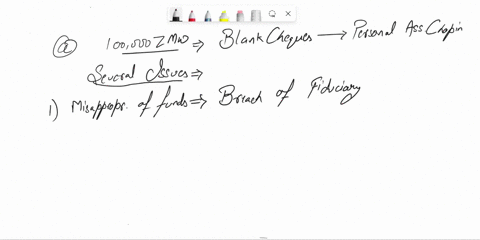 ⓐ 100,000 ZMW ⇒ Blank Cheques → Personal Ass Chopin
Several Issues ⇒
1) Misapprop. of funds ⇒ Breach of Fiduciary